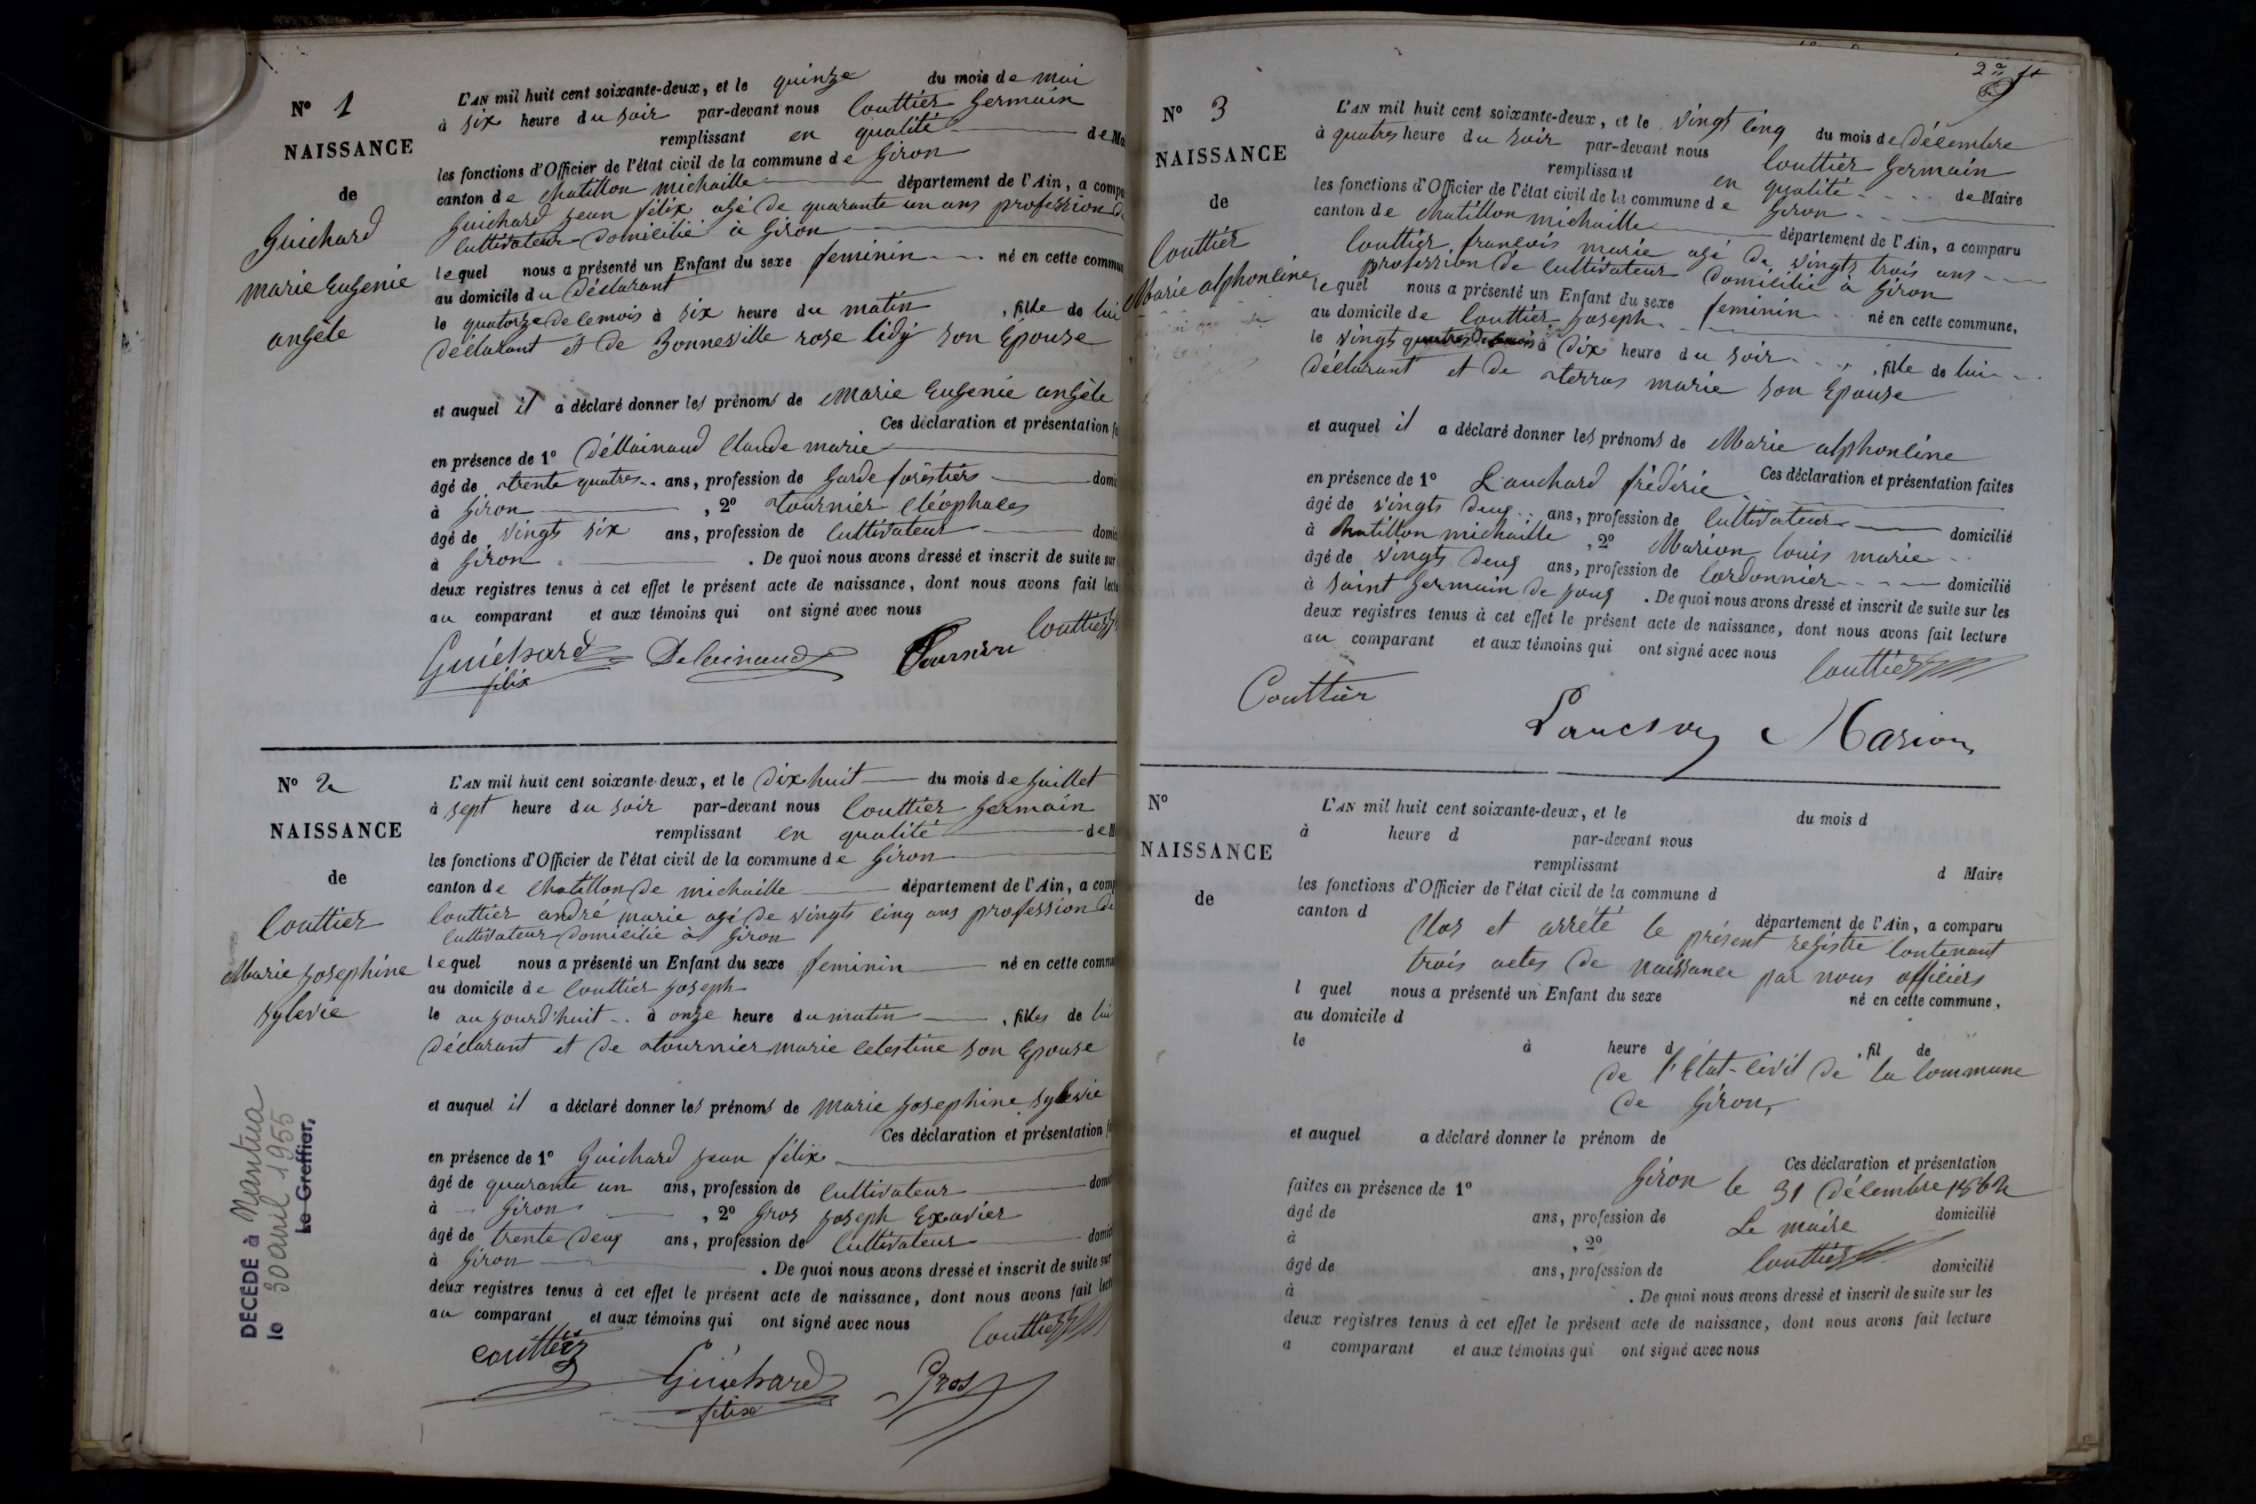 N° 1
NAISSANCE
de
Guichard
marie Eugenie
angéle
L'AN mil huit cent soixante-deux, et le quinze du mois de mai
à six heure du soir par-devant nous Couttier Germain
remplissant en qualité de Ma
les fonctions d'Officier de l'état civil de la commune de Giron
canton de Chatillon michaille département de l'Ain, a compa
Guichard jean félix agé de quarante un ans profession de
Cultivateur domicilié à Giron
lequel nous a présenté un Enfant du sexe feminin né en cette commun
au domicile du déclarant
le quatorze de ce mois à six heure du matin, fille de lui
déclarant et de Bonneville rose lidy son Epouse
et auquel il a déclaré donner les prénoms de Marie Eugenie angéle
Ces déclaration et présentation fa
en présence de 1° Délainaud Claude marie
âgé de trente quatres ans, profession de Garde forêstiérs domi
à Giron, 2° tournier Cléophales
âgé de vingt six ans, profession de Cultivateur domic
à Giron. De quoi nous avons dressé et inscrit de suite sur
deux registres tenus à cet effet le présent acte de naissance, dont nous avons fait lectu
au comparant et aux témoins qui ont signé avec nous
Couttier
Guichard félix Delainaud Tournier
N° 2
NAISSANCE
de
Couttier
Marie Josephine
Sylvie
DÉCÉDÉ à Nantua
le 30 avril 1955
Le Greffier,
L'AN mil huit cent soixante-deux, et le dix huit du mois de Juillet
à sept heure du soir par-devant nous Couttier Germain
remplissant en qualité de M
les fonctions d'Officier de l'état civil de la commune de Giron
canton de Chatillon de michaille département de l'Ain, a comp
Couttier andré marie agé de vingts cinq ans profession de
Cultivateur domicilié à Giron
lequel nous a présenté un Enfant du sexe feminin né en cette commu
au domicile de Couttier Joseph
le aujourd'huit à onze heure du matin, filles de lui
déclarant et de tournier marie celestine son Epouse
et auquel il a déclaré donner les prénoms de marie Josephine Sylvie
Ces déclaration et présentation fa
en présence de 1° Guichard jean félix
âgé de quarante un ans, profession de Cultivateur domi
à Giron, 2° Gros Joseph Exavier
âgé de trente deux ans, profession de Cultivateur domici
à Giron. De quoi nous avons dressé et inscrit de suite sur
deux registres tenus à cet effet le présent acte de naissance, dont nous avons fait lect
au comparant et aux témoins qui ont signé avec nous
Couttier
Couttier Guichard félix Gros
2e ft
N° 3
NAISSANCE
de
Couttier
Marie alphonsine
L'AN mil huit cent soixante-deux, et le vingt cinq du mois de décembre
à quatres heure du soir par-devant nous Couttier Germain
remplissant en qualité de Maire
les fonctions d'Officier de l'état civil de la commune de Giron
canton de Chatillon michaille département de l'Ain, a comparu
Couttier francois marie agé de vingts trois ans
profession de cultivateur domicilié à Giron
lequel nous a présenté un Enfant du sexe feminin né en cette commune,
au domicile de Couttier Joseph
le vingt quatres de ce mois à dix heure du soir, fille de lui
déclarant et de terras marie son Epouse
et auquel il a déclaré donner les prénoms de Marie alphonsine
Ces déclaration et présentation faites
en présence de 1° Lanchard frédéric
âgé de vingts deux ans, profession de Cultivateur domicilié
à Chatillon michaille, 2° Marion louis marie
âgé de vingts deux ans, profession de Cordonnier domicilié
à saint germain de joux. De quoi nous avons dressé et inscrit de suite sur les
deux registres tenus à cet effet le présent acte de naissance, dont nous avons fait lecture
au comparant et aux témoins qui ont signé avec nous
Couttier
Couttier
Marion
N°
NAISSANCE
de
L'AN mil huit cent soixante-deux, et le du mois d
à heure d par-devant nous
remplissant d Maire
les fonctions d'Officier de l'état civil de la commune d
canton d département de l'Ain, a comparu
Clos et arrêté le présent registre contenant
trois actes de naissance par nous officiers
l quel nous a présenté un Enfant du sexe né en cette commune,
au domicile d
le à heure d, fil de
de l'Etat-civil de la Commune
de Giron,
et auquel a déclaré donner le prénom de
Ces déclaration et présentation
Giron le 31 décembre 1862
faites en présence de 1°
âgé de ans, profession de domicilié
Le maire
à, 2°
Couttier
âgé de ans, profession de domicilié
à. De quoi nous avons dressé et inscrit de suite sur les
deux registres tenus à cet effet le présent acte de naissance, dont nous avons fait lecture
a comparant et aux témoins qui ont signé avec nous